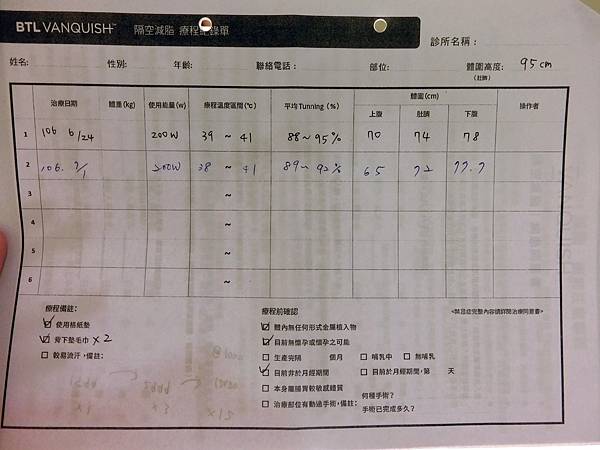 BTL VANQUISH™ 隔空減脂 療程紀錄單
診所名稱：
姓名: 性別: 年齡: 聯絡電話： 部位: 體圍高度: 95cm
(肚臍)
治療日期 體重(kg) 使用能量(w) 療程溫度區間(℃) 平均Tunning (%) 體圍(cm) 操作者
上腹 肚臍 下腹
1 106 6/24 200W 39 ~ 41 88~95% 70 74 78
2 106. 7/1 200W 38 ~ 41 89~92% 65 72 77.7
3 ~
4 ~
5 ~
6 ~
療程備註： 療程前確認 <禁忌症完整內容請詳閱治療同意書>
☑ 使用格紙墊 ☑ 體內無任何形式金屬植入物
☑ 背下墊毛巾 x2 ☑ 目前無懷孕或懷孕之可能
☐ 較易流汗，備註： ☐ 生產完隔 個月 ☐ 哺乳中 ☐ 無哺乳
☑ 目前非於月經期間 ☐ 目前於月經期間，第 天
☐ 本身屬腸胃較敏感體質
☐ 治療部位有動過手術，備註： 何種手術？
手術已完成多久？